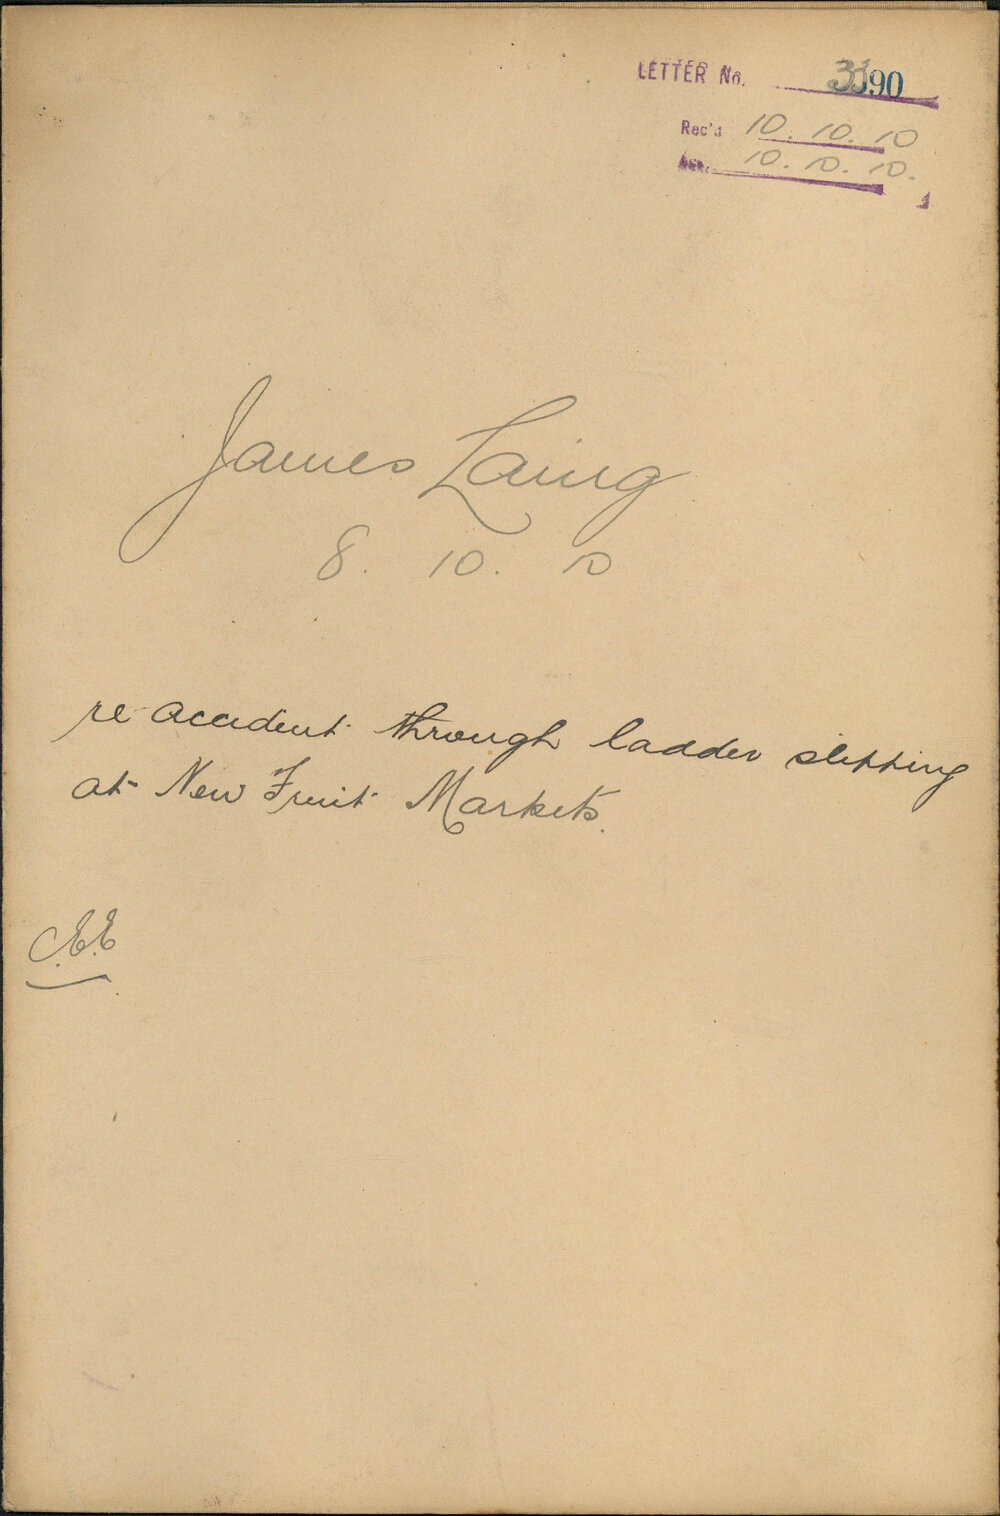 LETTER No. 3390
Rec'd 10. 10. 10
10. 10. 10.
James Laing
8. 10. 10
re accident through ladder slipping
at New Fruit Markets.